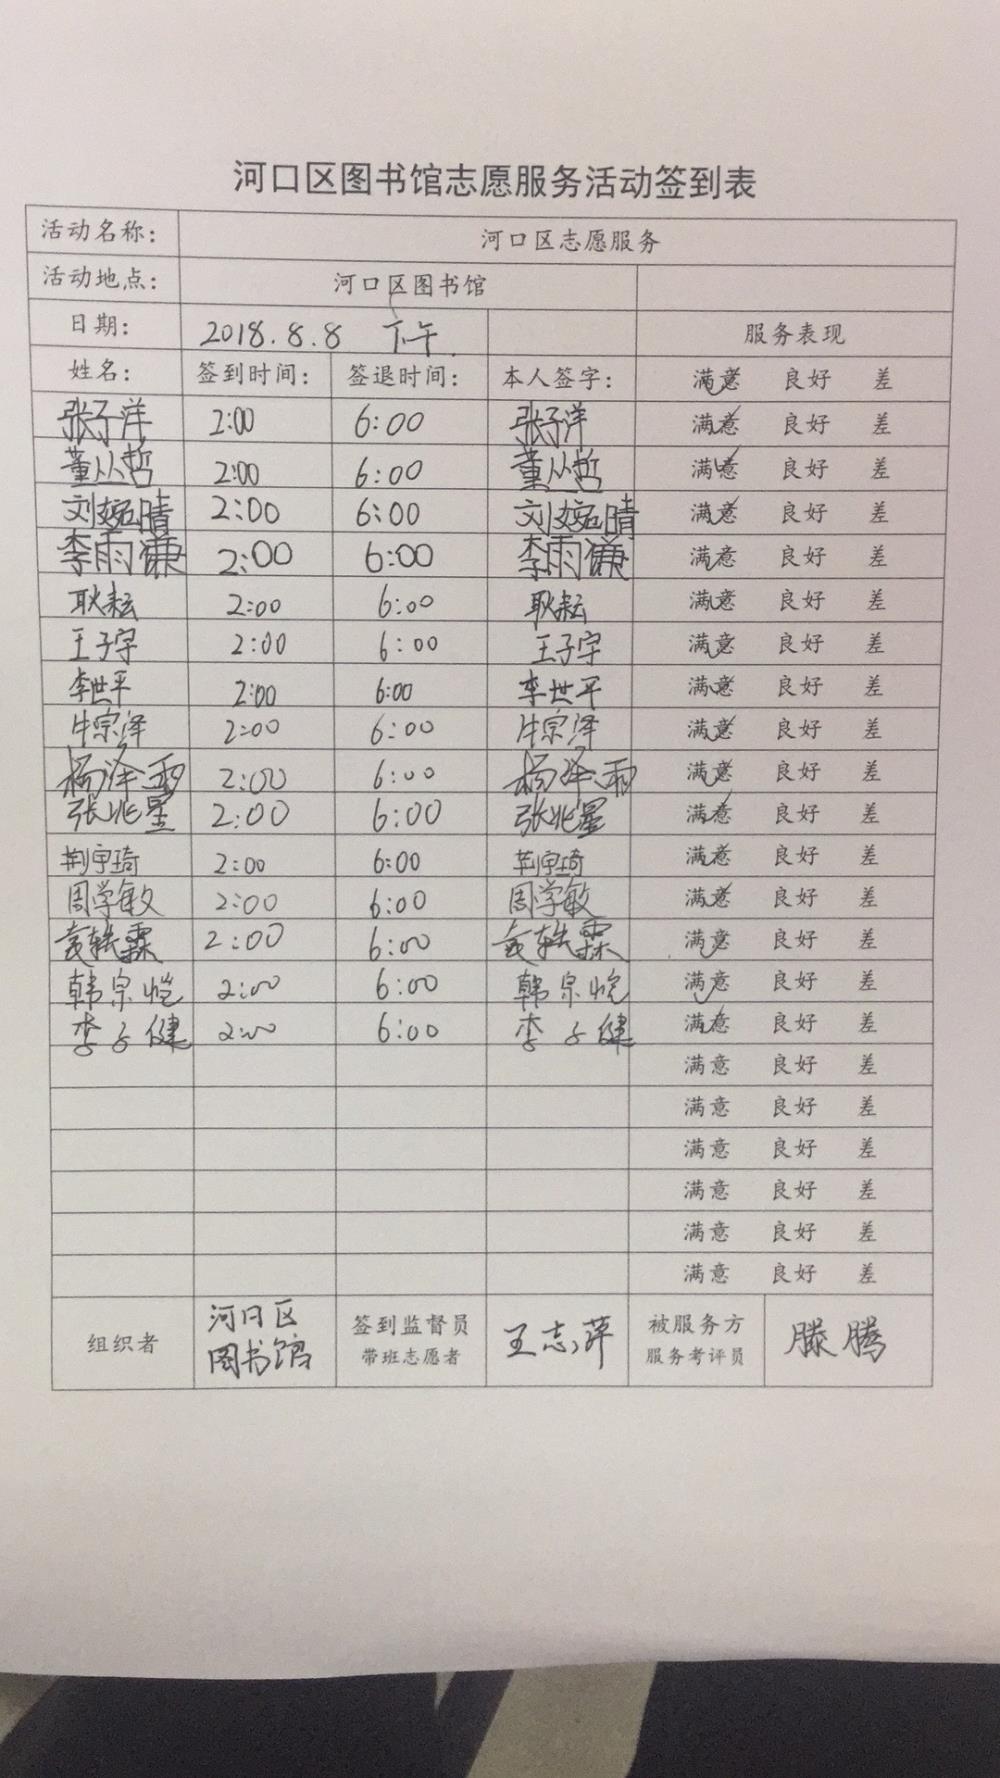 河口区图书馆志愿服务活动签到表
活动名称： 河口区志愿服务
活动地点： 河口区图书馆
日期： 2018.8.8 下午 服务表现
姓名： 签到时间： 签退时间： 本人签字： 满意 良好 差
张子洋 2:00 6:00 张子洋 满意 良好 差
董从哲 2:00 6:00 董从哲 满意 良好 差
刘婉晴 2:00 6:00 刘婉晴 满意 良好 差
李雨谦 2:00 6:00 李雨谦 满意 良好 差
耿耘 2:00 6:00 耿耘 满意 良好 差
王子宇 2:00 6:00 王子宇 满意 良好 差
李世平 2:00 6:00 李世平 满意 良好 差
牛宗泽 2:00 6:00 牛宗泽 满意 良好 差
杨泽雨 2:00 6:00 杨泽雨 满意 良好 差
张兆星 2:00 6:00 张兆星 满意 良好 差
荆宇琦 2:00 6:00 荆宇琦 满意 良好 差
周学敏 2:00 6:00 周学敏 满意 良好 差
2:00 6:00 满意 良好 差
韩宗恺 2:00 6:00 韩宗恺 满意 良好 差
李子健 2:00 6:00 李子健 满意 良好 差
满意 良好 差
满意 良好 差
满意 良好 差
满意 良好 差
满意 良好 差
满意 良好 差
组织者 河口区 图书馆 签到监督员 带班志愿者 王志萍 被服务方 服务考评员 滕腾